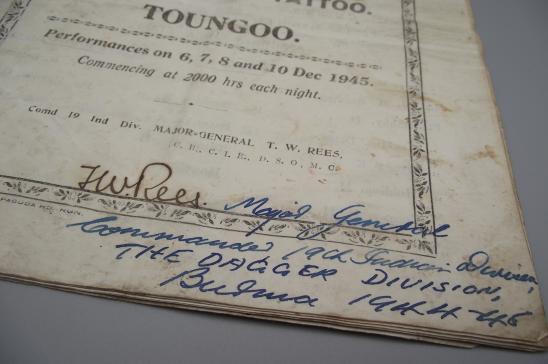 TATTOO.
TOUNGOO.
Performances on 6, 7, 8 and 10 Dec 1945.
Commencing at 2000 hrs each night.
Comd 19 Ind Div. MAJOR-GENERAL T. W. REES.
C. B., C. I. E., D. S. O., M. C.
TWRees. Major General
PAGODA RD, RGN.
Commander 19th Indian Division,
THE DAGGER DIVISION,
Burma 1944-45